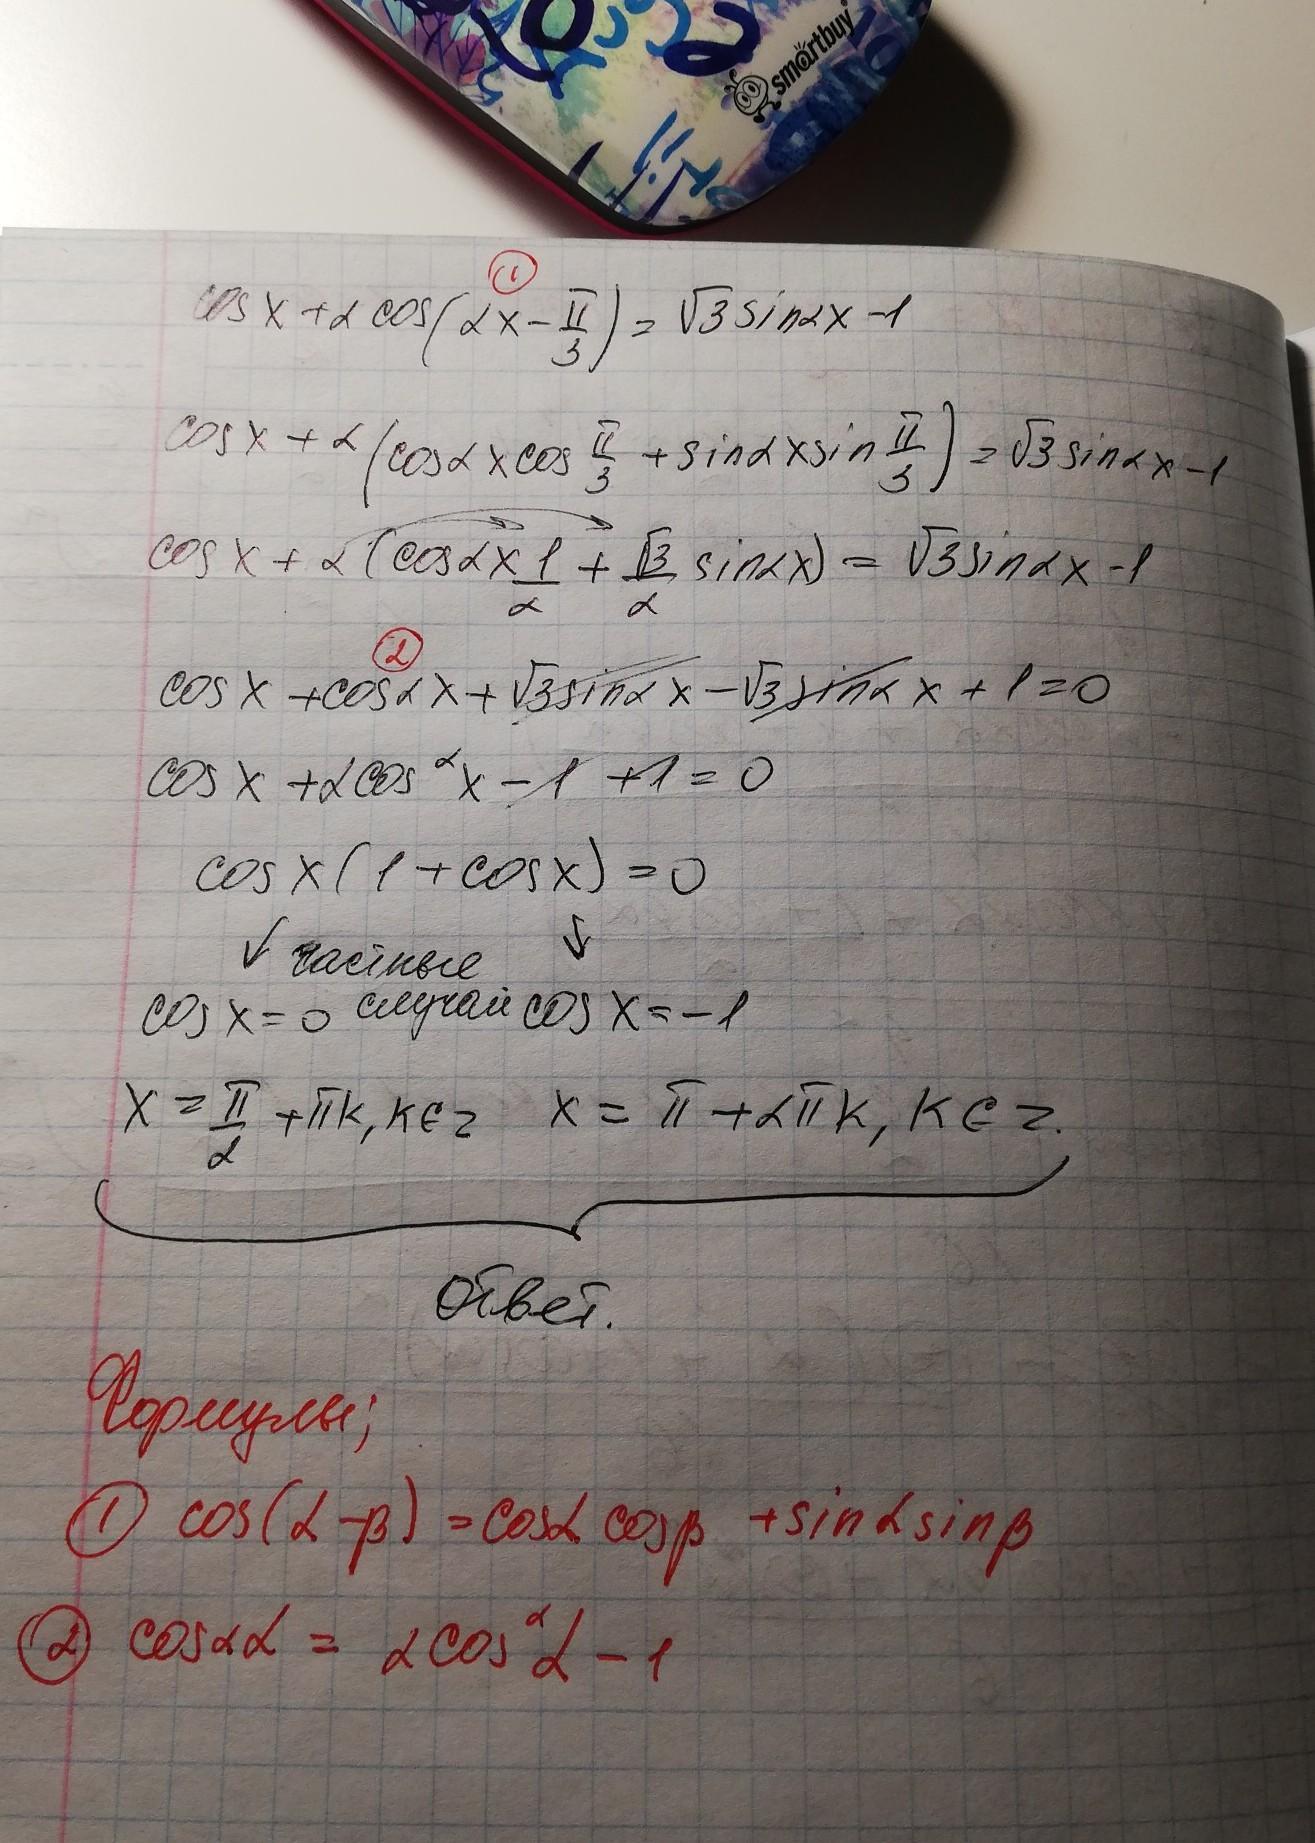 smartbuy
①
cos x + 2 cos(2x - π/3) = √3 sin2x - 1
cos x + 2(cos2x cos π/3 + sin2x sin π/3) = √3 sin2x - 1
cos x + 2(cos2x 1/2 + √3/2 sin2x) = √3 sin2x - 1
②
cos x + cos2x + √3 sin2x - √3 sin2x + 1 = 0
cos x + 2cos²x - 1 + 1 = 0
cos x(1 + cos x) = 0
↓ частные ↓
cos x = 0 случаи cos x = -1
x = π/2 + πk, k∈z x = π + 2πk, k∈z.
Ответ.
Формулы;
① cos(α - β) = cosα cosβ + sinα sinβ
② cos2α = 2cos²α - 1